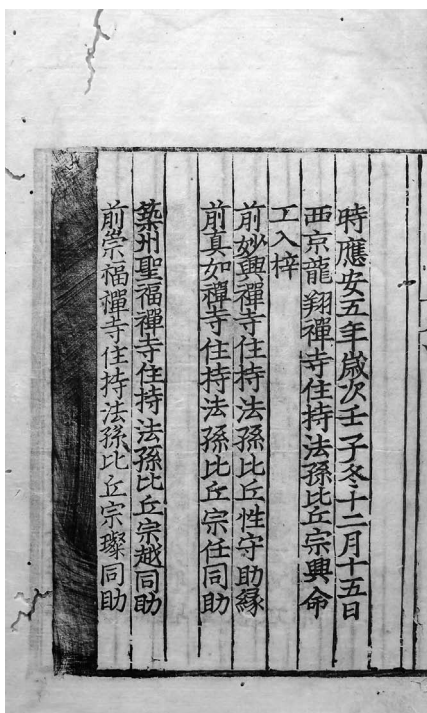 時應安五年歳次壬子冬十二月十五日
西京龍翔禪寺住持法孫比丘宗興命
工入梓
前妙興禪寺住持法孫比丘性守助縁
前真如禪寺住持法孫比丘宗任同助
築州聖福禪寺住持法孫比丘宗越同助
前崇福禪寺住持法孫比丘宗璨同助